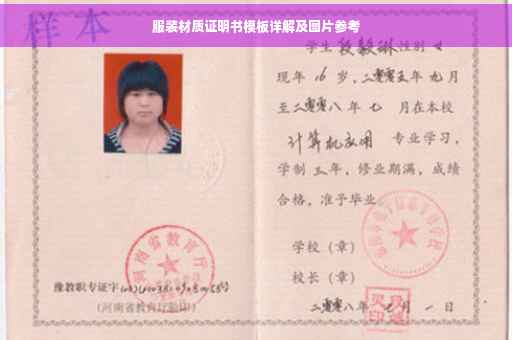 服装材质证明书模板详解及图片参考
样本
学生 段毅琳 性别 女
现年 16 岁，二零零五年 九 月
至二零零八 年 七 月在本校
计算机应用 专业学习，
学制 三 年，修业期满，成绩
合格，准予毕业
学校（章）
校长（章）
二零零八年 七 月 一 日
河南省教育厅
豫教职专证字
(河南省教育厅验印)